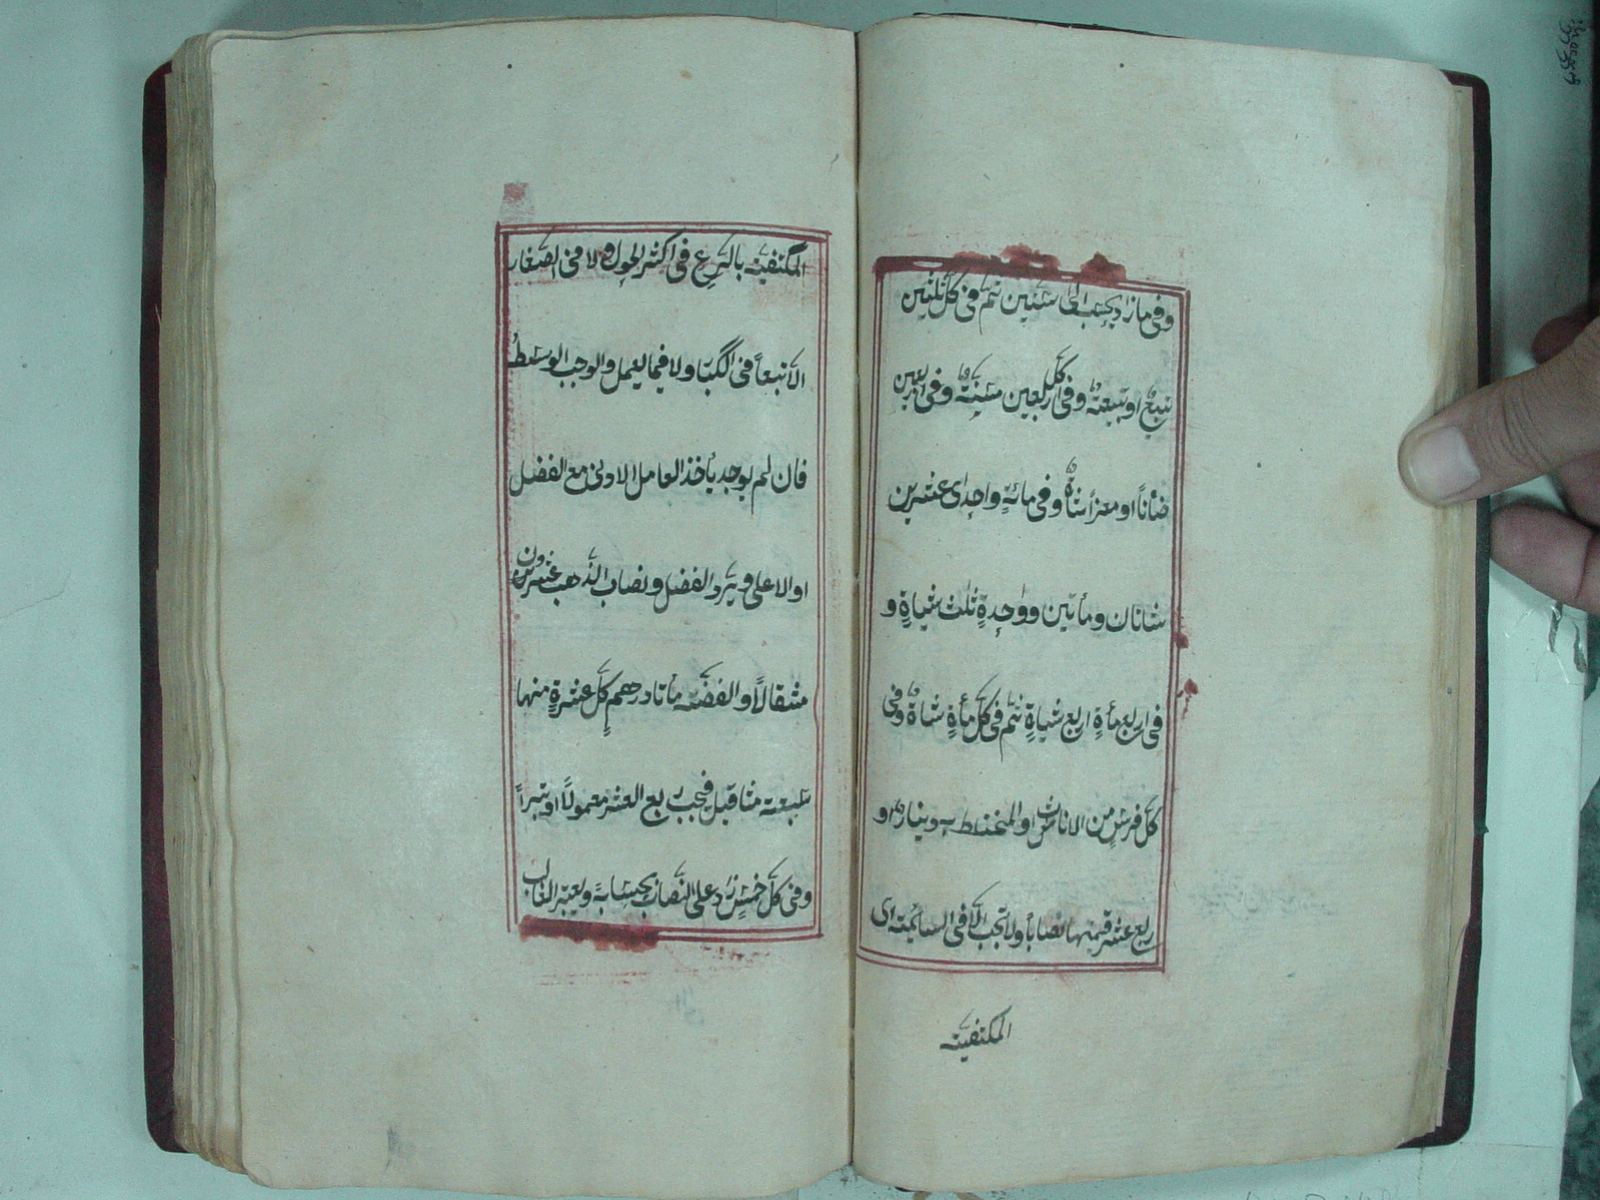 وفى ما زاد يحسب الى ستين ثم فى كل ثلثين
تبيع او تبيعة وفى كل اربعين مسنة وفى اربعين
ضانا او معزا شاة وفى مائة واحدى عشرين
شاتان ومأتين وواحدة ثلث شياة و
فى اربع مأة اربع شياة ثم فى كل مأة شاة وفى
كل فرس من الاناث او المختلط به دينار او
ربع عشر قيمتها نصابا ولا تجب الا فى السائمة اى
المكتفية
المكتفية بالرعى فى اكثر الحول ولا فى الصغار
الا تبعا فى الكبار ولا فيما يعمل والوجب الوسط
فان لم يوجد يأخذ العامل الادنى مع الفضل
او الاعلى ويرد الفضل ونصاب الذهب عشرون
مثقالا والفضة مأتا درهم كل عشرة منها
سبعة مثاقيل فيجب ربع العشر معمولا او تبرا
وفى كل خمس زاد على النصاب بحسابه ويعتبر الغالب